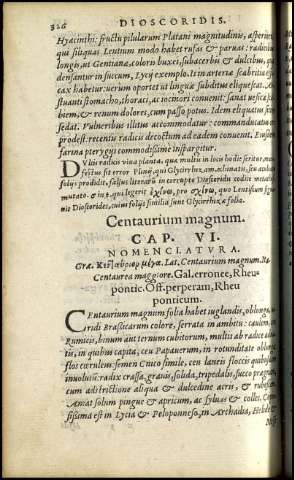 326 DIOSCORIDIS.
Hyacinthi: fructu pilularum Platani magnitudinis, asperiore,
quæ siliquas Lentium modo habet rufas & paruas: radicibus
longis, ut Gentianæ, coloris buxei, subacerbis & dulcibus, quæ
densantur in succum, Lycij exemplo. Is in arteriæ scabritie effi-
cax habetur: uerum oportet ut linguæ subditus eliquescat. Æ-
stuanti stomacho, thoraci, ac iocinori conuenit: sanat uesicæ
& renum dolores, cum passo potus. Idem eliquatus
sedat. Vulneribus illitus accommodatur: commanducatus
prodest. recentis radicis decoctum ad eadem conuenit. Eiusdem
farina pterygijs commodissime inspargitur.
Dulcis radicis uirga planta, quæ multis in locis hodie seritur,
Plinij, qui Glycyrrhizam, echinatis, seu aculeatis
folijs prodidit,
mutato. & in legerit ἐχίνου, pro σχίνου, quo Lentiscum
uit Dioscorides, cuius folijs similia sunt Glycirrhizæ folia.
Centaurium magnum.
CAP. VI.
NOMENCLATVRA.
Græ. Κενταύριον μέγα. Lat. Centaurium magnum. It.
Centaurea maggiore. Gal. erronee, Rheu
pontic. Off. perperam, Rheu
ponticum.
CEntaurium magnum folia habet iuglandis, oblonga,
ridi Brassicarum colore, serrata in ambitu: caulem,
Rumicis, binum aut ternum cubitorum, multis ab radice
tis, in quibus capita, ceu Papauerum, in rotunditate oblonga:
flos cæruleus: semen Cnico simile, ceu laneis floccis quibusdam
inuolutum: radix crassa, grauis, solida, tripedalis, succo prægnans,
cum adstrictione aliqua & dulcedine acris, &
Amat solum pingue & apricum, ac syluas & colles.
sissima est in Lycia & Peloponneso, in Archadia,